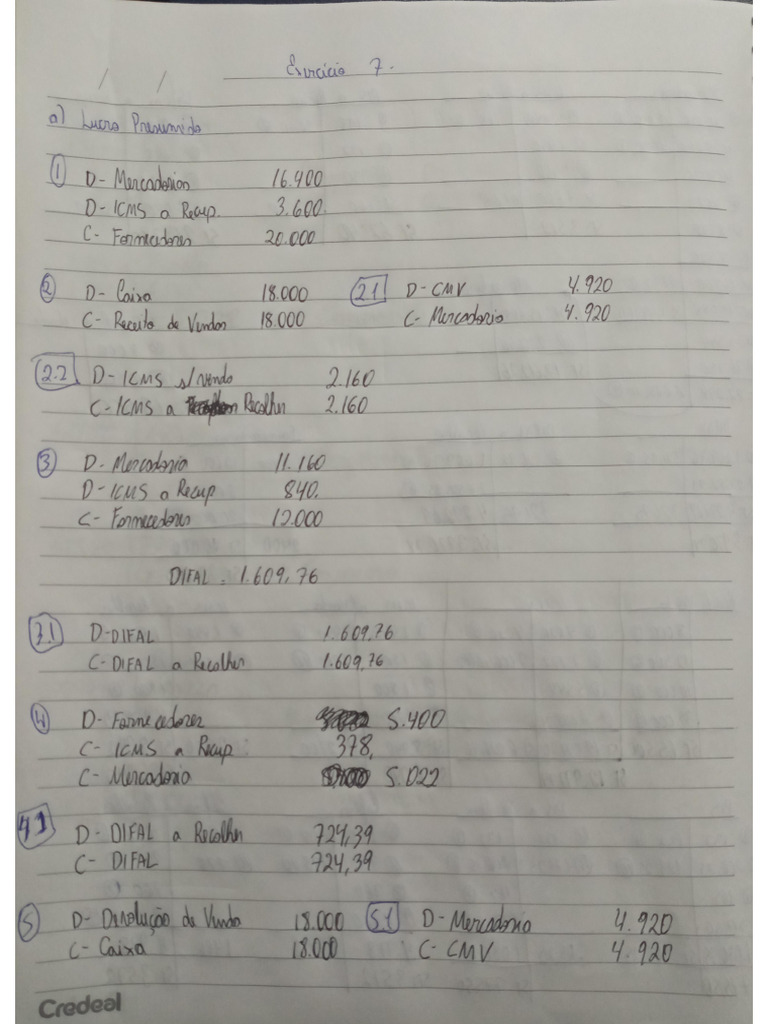 Exercício 7.
/ /
a) Lucro Presumido
1 D- Mercadorias 16.400
D- ICMS a Recup. 3.600.
C- Fornecedores 20.000
2 D- Caixa 18.000 2.1 D- CMV 4.920
C- Receita de Vendas 18.000 C- Mercadoria 4.920
2.2 D- ICMS s/ venda 2.160
C- ICMS a Recolher 2.160
3 D- Mercadoria 11.160
D- ICMS a Recup 840.
C- Fornecedores 12.000
DIFAL = 1.609,76
3.1 D- DIFAL 1.609,76
C- DIFAL a Recolher 1.609,76
4 D- Fornecedores 5.400
C- ICMS a Recup. 378,
C- Mercadoria 5.022
4.1 D- DIFAL a Recolher 724,39
C- DIFAL 724,39
5 D- Devolução de Venda 18.000 5.1 D- Mercadoria 4.920
C- Caixa 18.000 C- CMV 4.920
Credeal